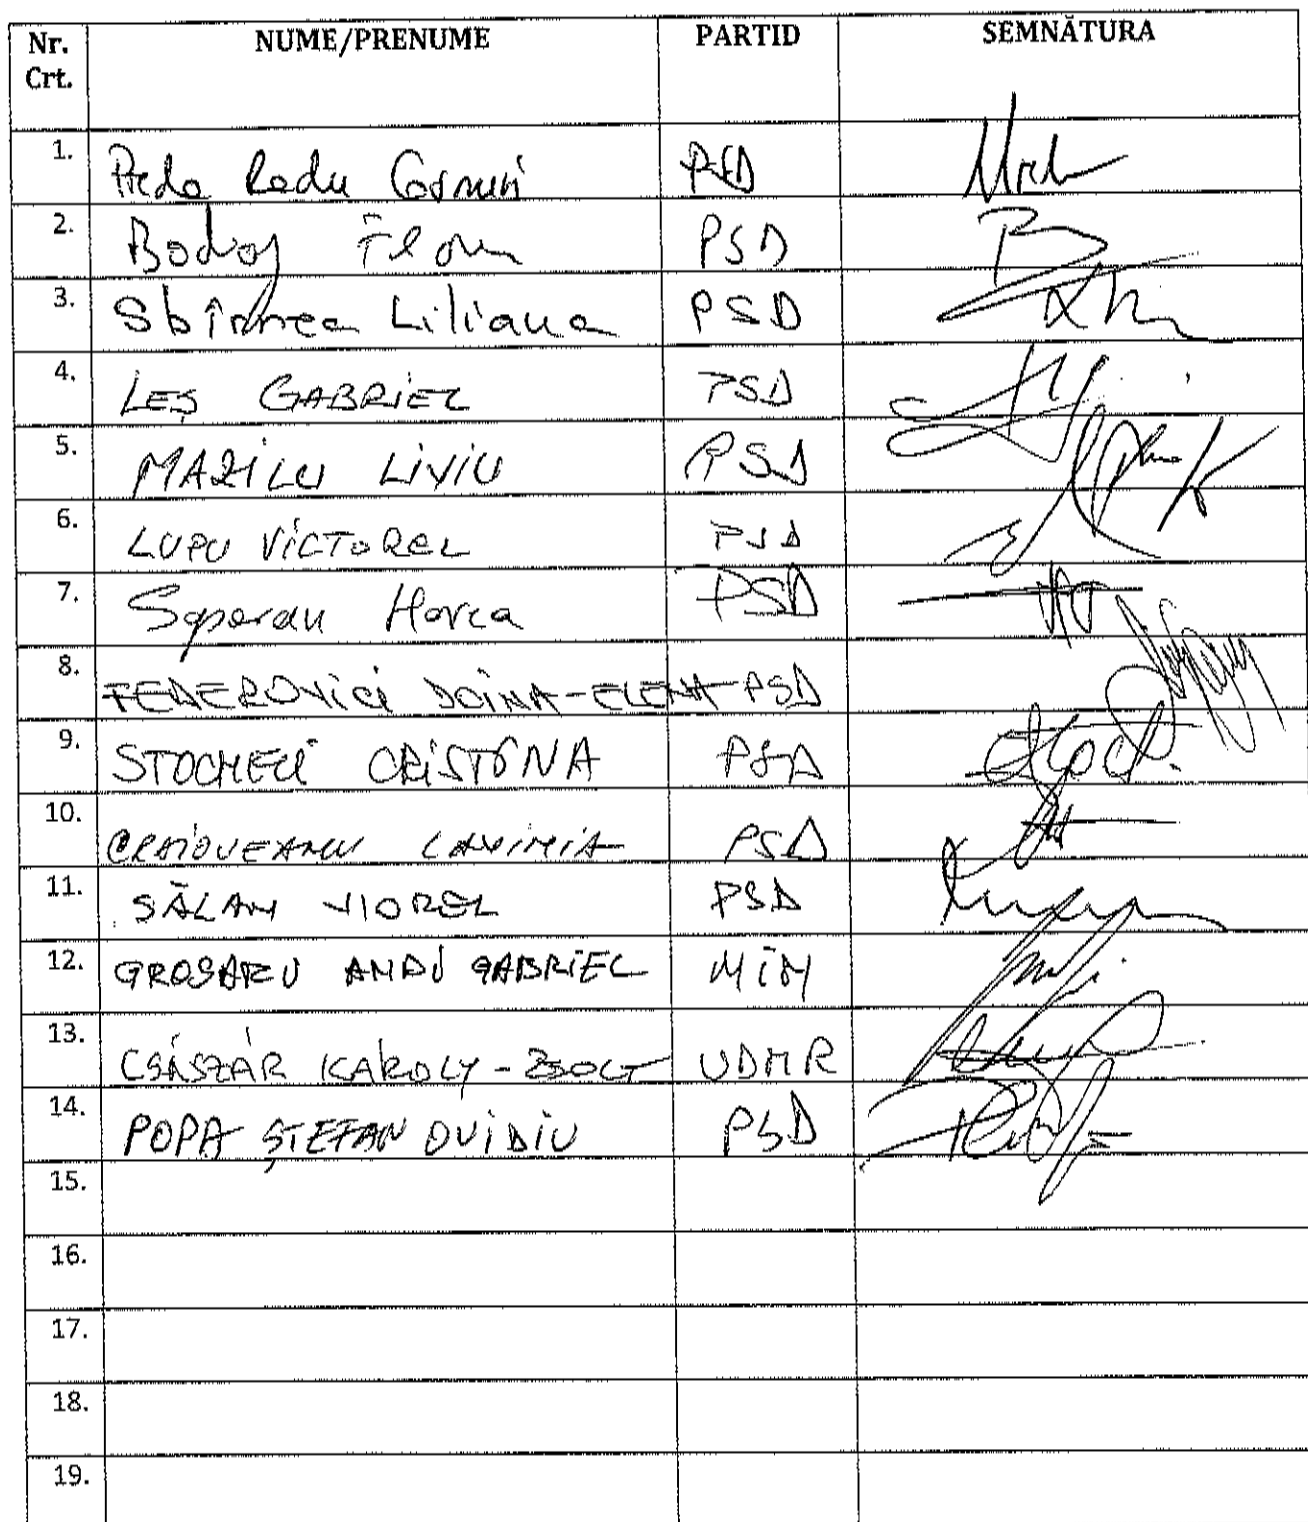 Nr. Crt. NUME/PRENUME PARTID SEMNĂTURA
1. Preda Radu Cosmin PSD
2. Bodog Florin PSD
3. Sbîrnea Liliana PSD
4. LEȘ GABRIEL PSD
5. MAZILU LIVIU PSD
6. LUPU VICTOREL PSD
7. Soporan Horea PSD
8. FEDEROVICI DOINA-ELENA PSD
9. STOCHECI CRISTINA PSD
10. CRAIOVEANU LAVINIA PSD
11. SĂLAN VIOREL PSD
12. GROSARU ANDI GABRIEL MIN
13. CSÁSZÁR KÁROLY-ZSOLT UDMR
14. POPA ȘTEFAN OVIDIU PSD
15.
16.
17.
18.
19.